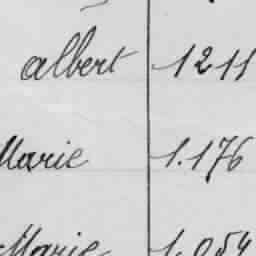 albert 1211
Marie 1.176
Marie 1.054